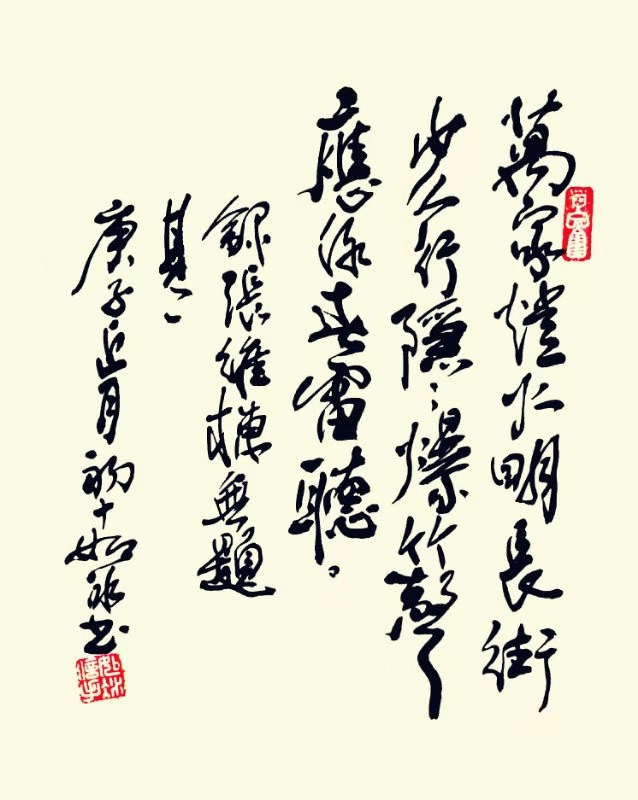 萬家燈火明長街
少人行隱〻爆竹聲
應作春雷聽〻
錄張維棟無題
其一
庚子正月初十如冰书